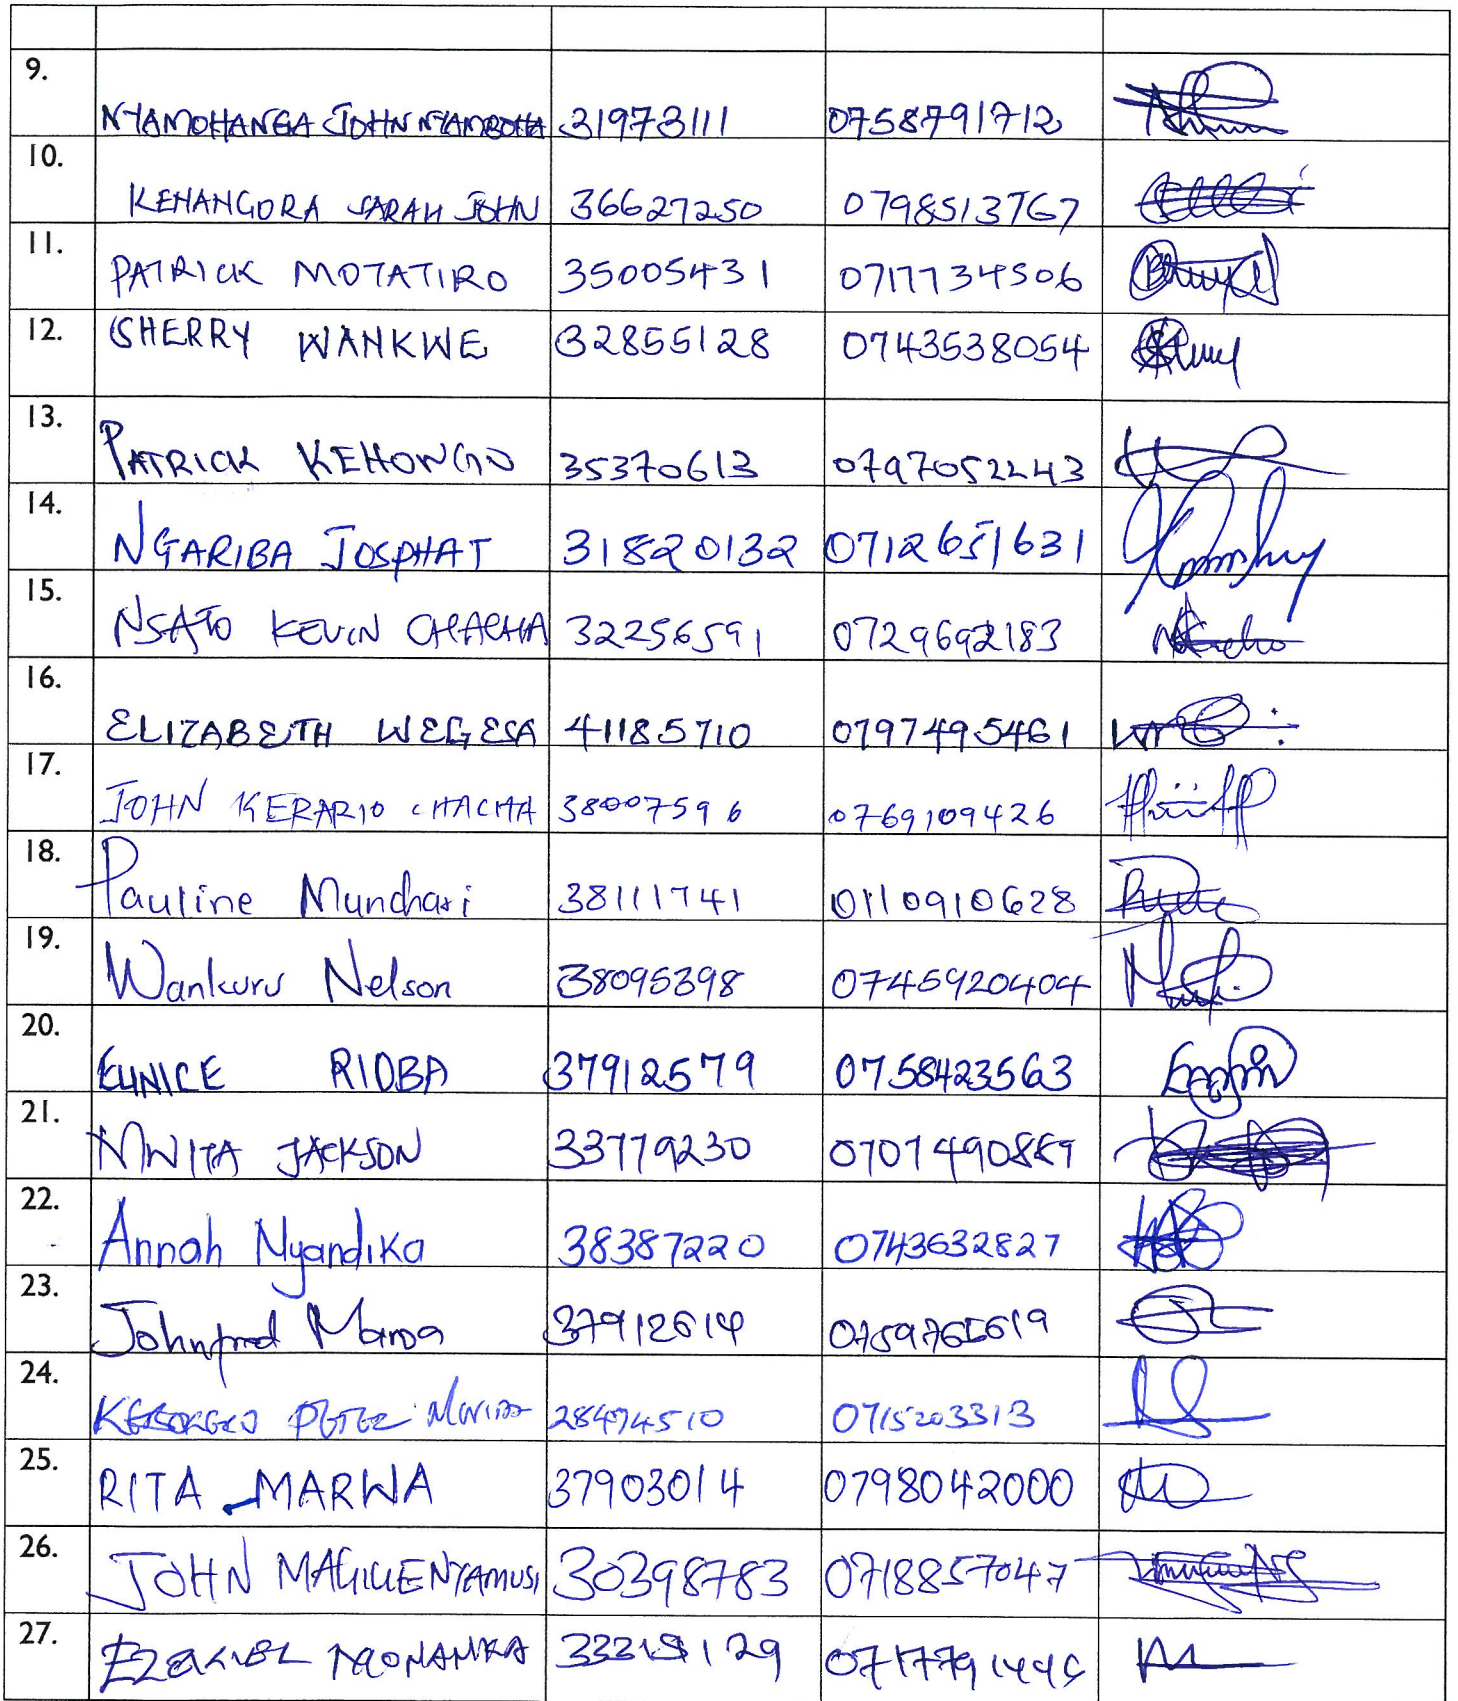 9.
NYAMOHANGA JOHN NYAMBOHA 31973111 0758791712
10.
KEHANGORA SARAH JOHN 36627250 0798513767
11.
PATRICK MOTATIRO 35005431 0717734506
12.
SHERRY WANKWE 32855128 0743538054
13.
PATRICK KEHONGO 35370613 0797052243
14.
NGARIBA JOSPHAT 31820132 0712651631
15.
NSATO KEVIN CHACHA 32256591 0729692183
16.
ELIZABETH WEGESA 41185710 0797495461
17.
JOHN KERARIO CHACHA 38007596 0769109426
18.
Pauline Munchari 38111741 0110910628
19.
Wankuru Nelson 38095398 0745920404
20.
EUNICE RIOBA 37912579 0758423563
21.
MWITA JACKSON 33779230 0707490889
22.
Annah Nyandika 38387220 0743632827
23.
Johnfred Marwa 37912614
24.
PETER 28474510 0715203313
25.
RITA MARWA 37903014 0798042000
26.
JOHN 30398783 0718857047
27.
EZEKIEL